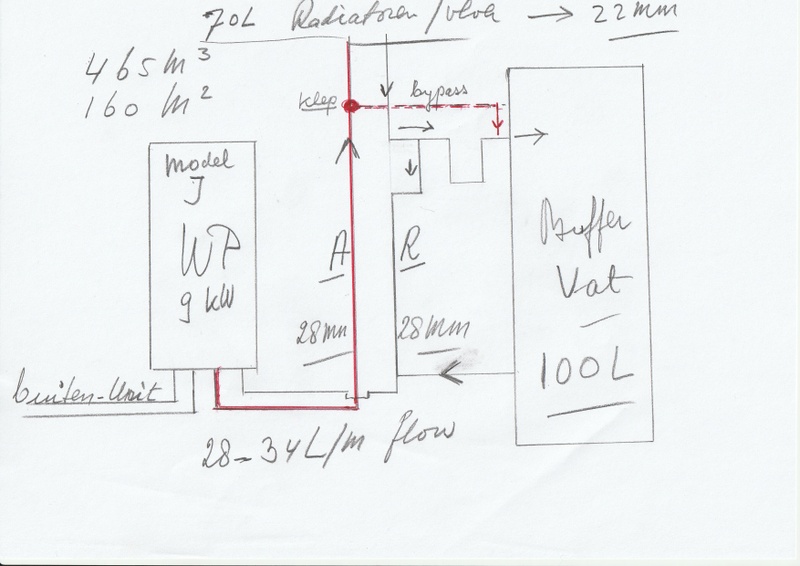 70L Radiatoren/vlvk → 22mm
465 m³
160 m²
Klep
bypass
Model
J
WP
9 kW
A
R
28mm
28mm
Buffer
Vat
100L
buiten-Unit
28-34L/m flow